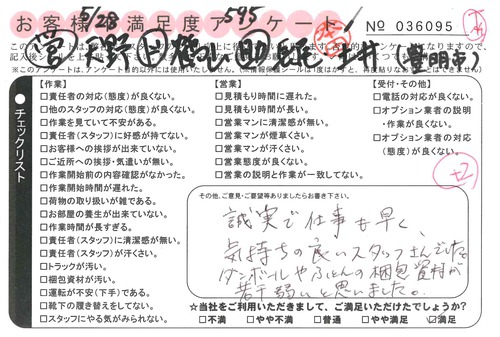 お客様満足度アンケート
5/28
595
№ 036095
営 天野
土井 (豊明市)
チェックリスト
【作業】
□責任者の対応(態度)が良くない。
□他のスタッフの対応(態度)が良くない。
□作業を見ていて不安がある。
□責任者(スタッフ)に好感が持てない。
□お客様への挨拶が出来ていない。
□ご近所への挨拶・気遣いが無い。
□作業開始前の内容確認がなかった。
□作業開始時間が遅れた。
□荷物の取り扱いが雑である。
□お部屋の養生が出来ていない。
□作業時間が長すぎる。
□責任者(スタッフ)に清潔感が無い。
□責任者(スタッフ)が汗くさい。
□トラックが汚い。
□梱包資材が汚い。
□運転が不安(下手)である。
□靴下の履き替えをしてない。
□スタッフにやる気がみられない。
【営業】
□見積もり時間に遅れた。
□見積もり時間が長い。
□営業マンに清潔感が無い。
□営業マンが煙草くさい。
□営業マンが汗くさい。
□営業態度が良くない。
□営業の説明と作業が一致してない。
【受付・その他】
□電話の対応が良くない。
□オプション業者の説明
・作業が良くない。
□オプション業者の対応
(態度)が良くない。
+2
その他、ご意見・ご要望等ありましたらお書き下さい。
誠実で仕事も早く、
気持ちの良いスタッフさんでした。
ダンボールやふとんの梱包資材が
若干弱いと思いました。
☆当社をご利用いただきまして、ご満足いただけたでしょうか?
□不満 □やや不満 □普通 □やや満足 ☑満足